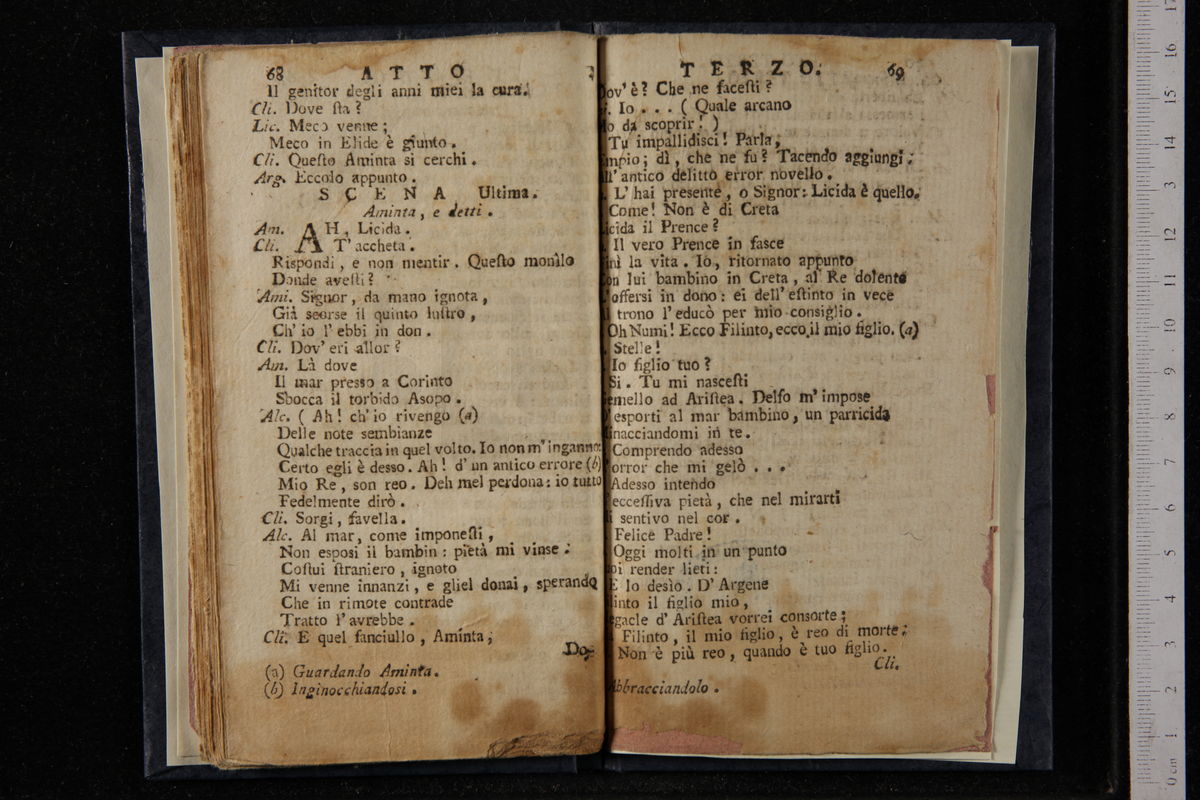 68 ATTO
Il genitor degli anni miei la cura.
Cli. Dove ſta?
Lic. Meco venne;
Meco in Elide è giunto.
Cli. Queſto Aminta si cerchi.
Arg. Eccolo appunto.
SCENA Ultima.
Aminta, e detti.
Am. AH, Licida.
Cli. T'accheta.
Rispondi, e non mentir. Queſto monilo
Donde aveſti?
Ami. Signor, da mano ignota,
Già scorse il quinto luſtro,
Ch'io l'ebbi in don.
Cli. Dov'eri allor?
Am. Là dove
Il mar presso a Corinto
Sbocca il torbido Asopo.
Alc. (Ah! ch'io rivengo (a)
Delle note sembianze
Qualche traccia in quel volto. Io non m'inganno:
Certo egli è desso. Ah! d'un antico errore (b)
Mio Re, son reo. Deh mel perdona: io tutto
Fedelmente dirò.
Cli. Sorgi, favella.
Alc. Al mar, come imponeſti,
Non esposi il bambin: pietà mi vinse.
Coſtui ſtraniero, ignoto
Mi venne innanzi, e gliel donai, sperando
Che in rimote contrade
Tratto l'avrebbe.
Cli. E quel fanciullo, Aminta,
Dov'
(a) Guardando Aminta.
(b) Inginocchiandosi.
TERZO. 69
ov'è? Che ne faceſti?
Io... (Quale arcano
da scoprir!)
Tu impallidisci! Parla,
mpio; dì, che ne fu? Tacendo aggiungi
ll'antico delitto error novello.
L'hai presente, o Signor: Licida è quello.
Come! Non è di Creta
icida il Prence?
Il vero Prence in fasce
inì la vita. Io, ritornato appunto
on lui bambino in Creta, al Re dolente
'offersi in dono: ei dell'eſtinto in vece
l trono l'educò per mio consiglio.
Oh Numi! Ecco Filinto, ecco il mio figlio. (a)
Stelle!
Io figlio tuo?
Sì. Tu mi nasceſti
emello ad Ariſtea. Delfo m'impose
'esporti al mar bambino, un parricida
inacciandomi in te.
Comprendo adesso
'orror che mi gelò...
Adesso intendo
'ecceſſiva pietà, che nel mirarti
i sentivo nel cor.
Felice Padre!
Oggi molti in un punto
oi render lieti:
E lo desìo. D'Argene
linto il figlio mio,
egacle d'Ariſtea vorrei consorte;
Filinto, il mio figlio, è reo di morte.
Non è più reo, quando è tuo figlio.
Cli.
Abbracciandolo.